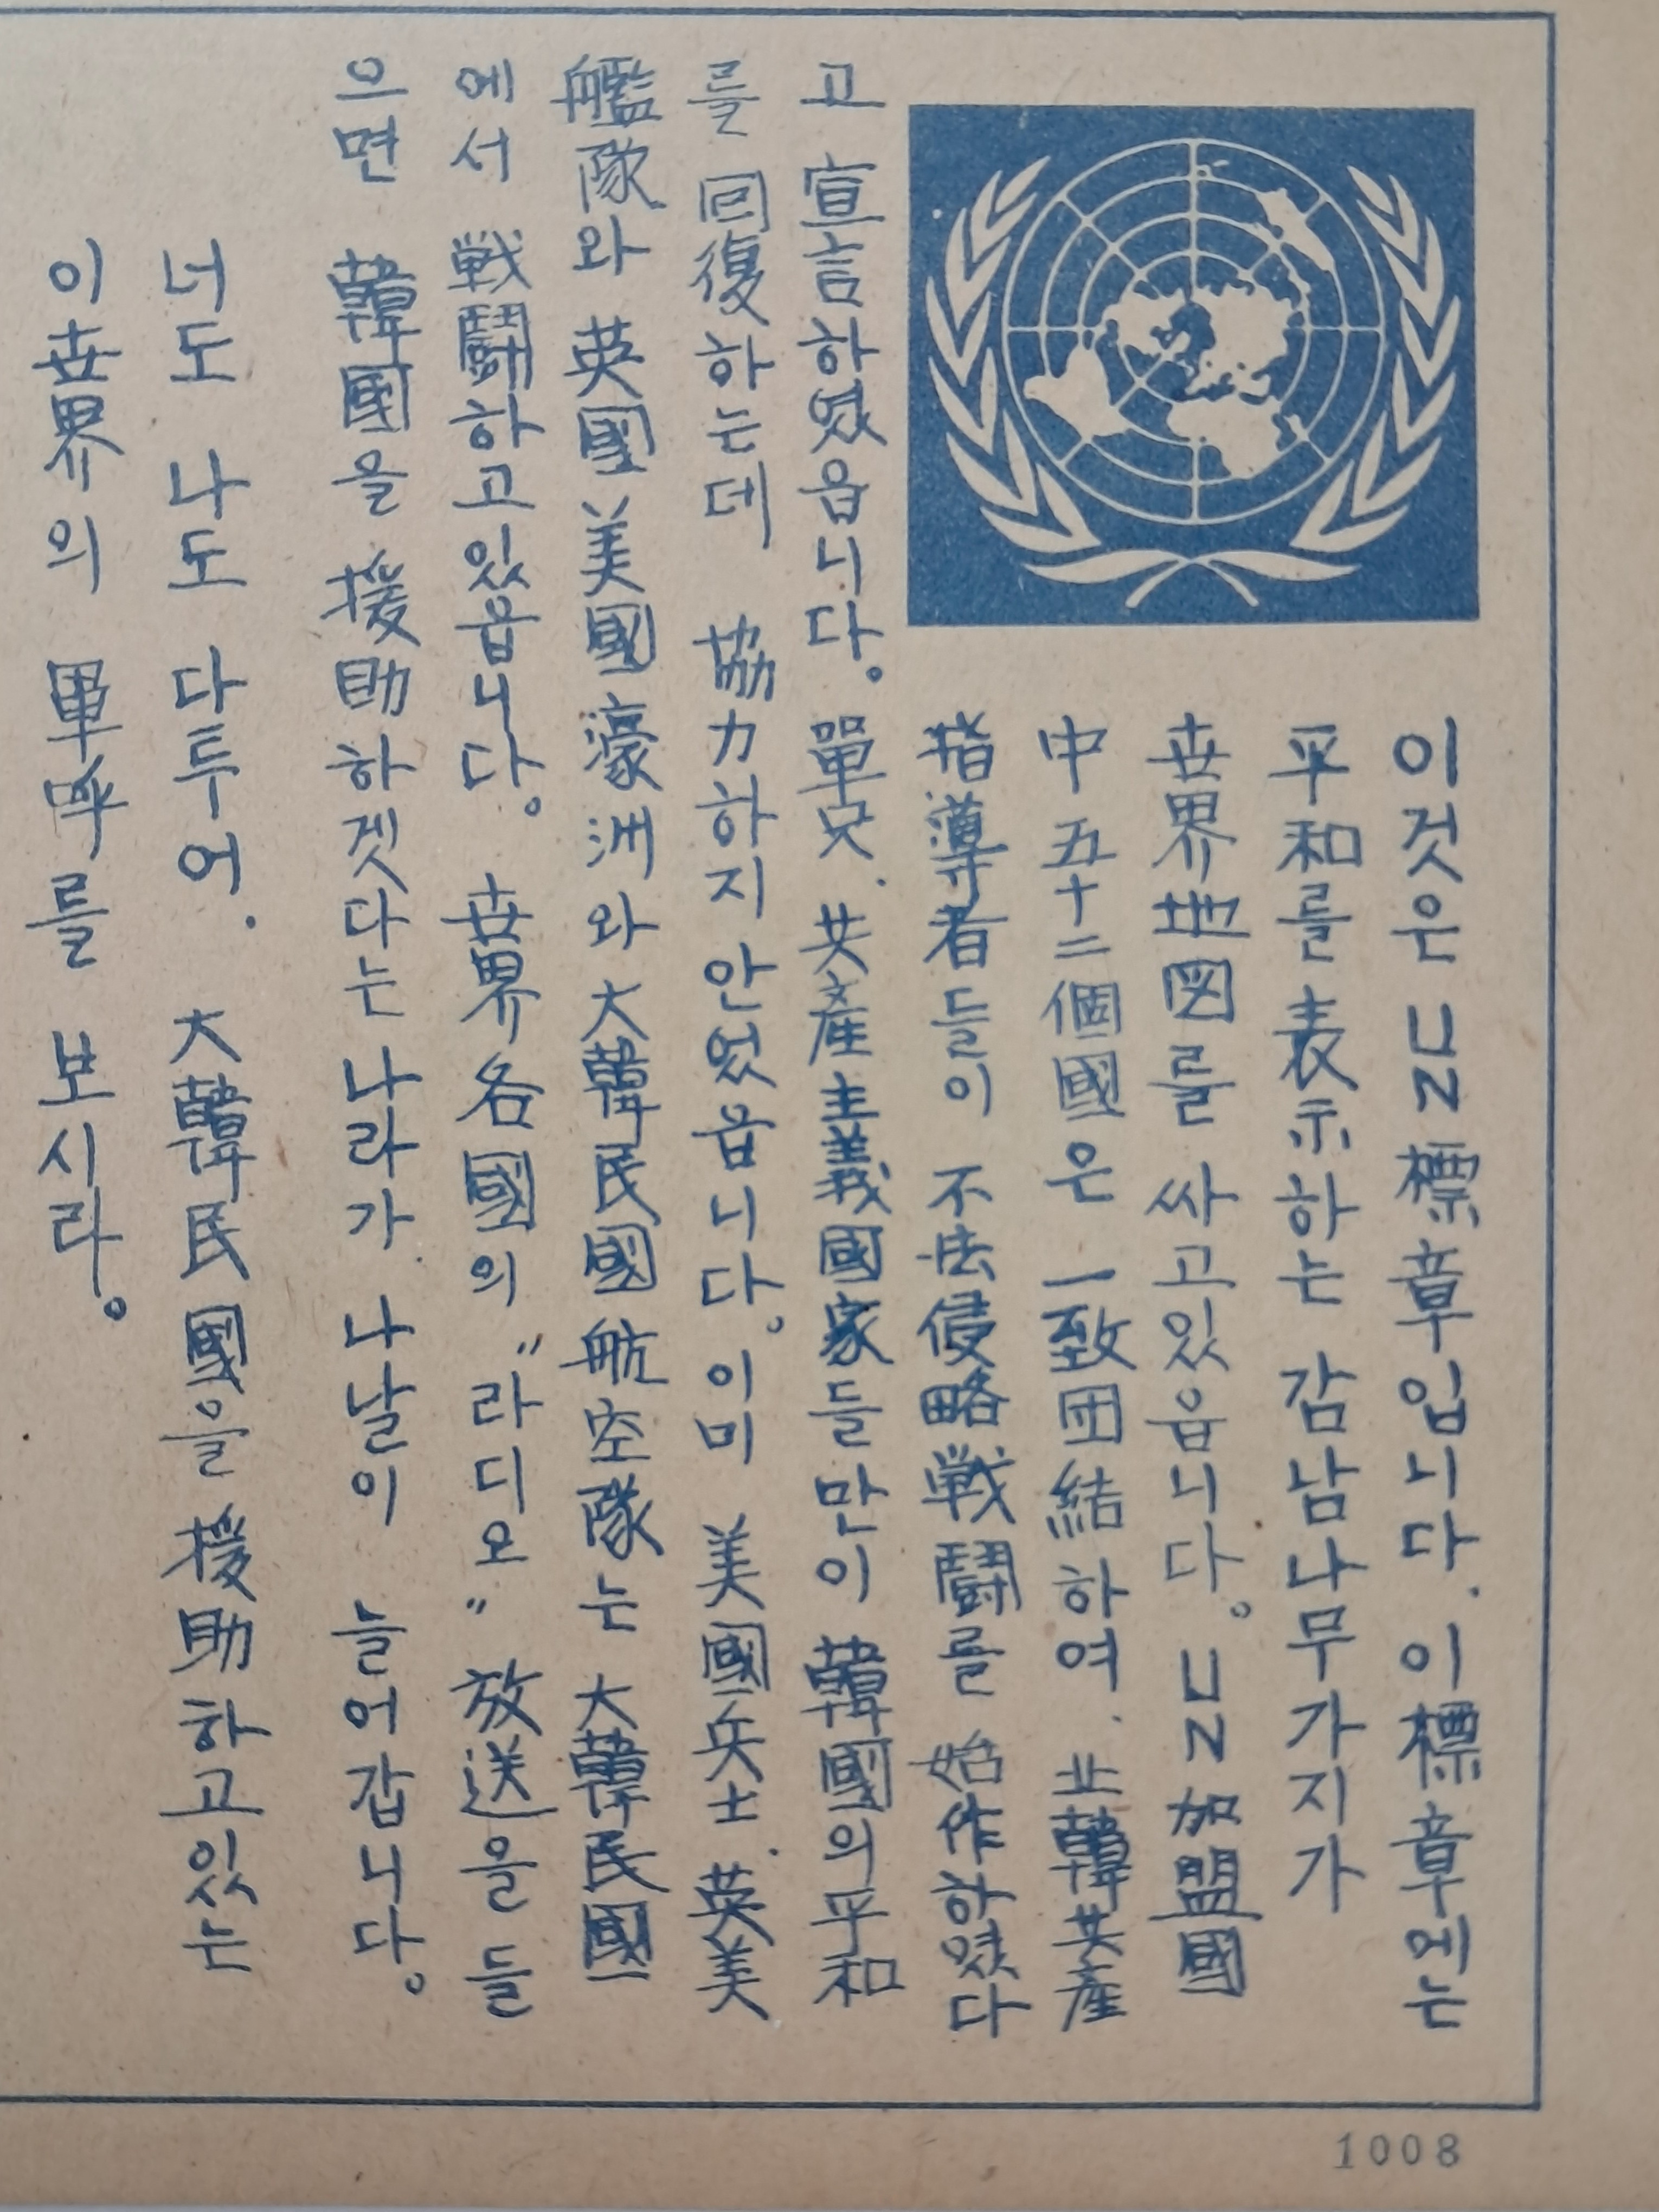 이것은 UN 標章입니다. 이 標章에는
平和를 表示하는 감남나무가지가
世界地図를 싸고있읍니다。 UN 加盟國
中 五十二個國은 一致団結하여. 北韓共産
指導者들이 不法侵略戦鬪를 始作하였다
고 宣言하였읍니다。 單只. 共産主義國家들만이 韓國의 平和
를 回復하는데 協力하지 안었읍니다。 이미 美國兵士. 英美
艦隊와 英國 美國 濠洲와 大韓民國 航空隊는 大韓民國
에서 戦鬪하고있읍니다。 世界各國의 “라디오” 放送을 들
으면 韓國을 援助하겟다는 나라가 나날이 늘어갑니다。
너도 나도 다투어. 大韓民國을 援助하고있는
이 世界의 歡呼를 보시라。
1008